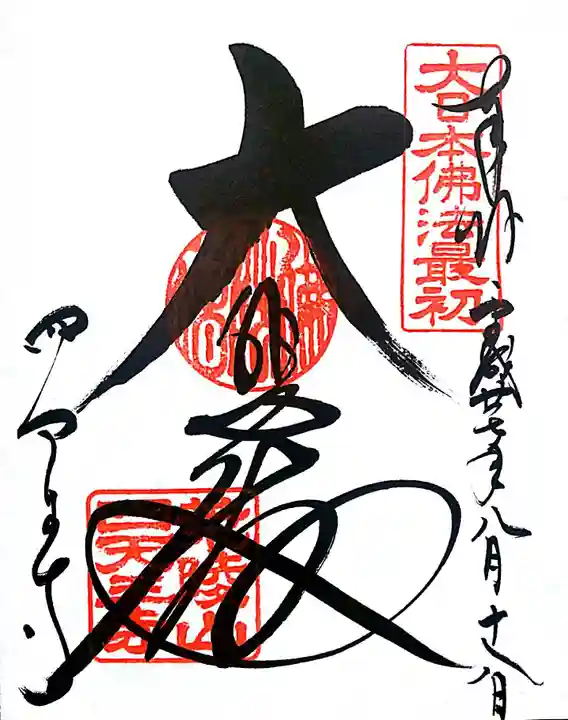 大日本佛法最初
奉拝 平成廿七年八月十八日
大悲殿
四天王寺
荒陵山
四天王寺